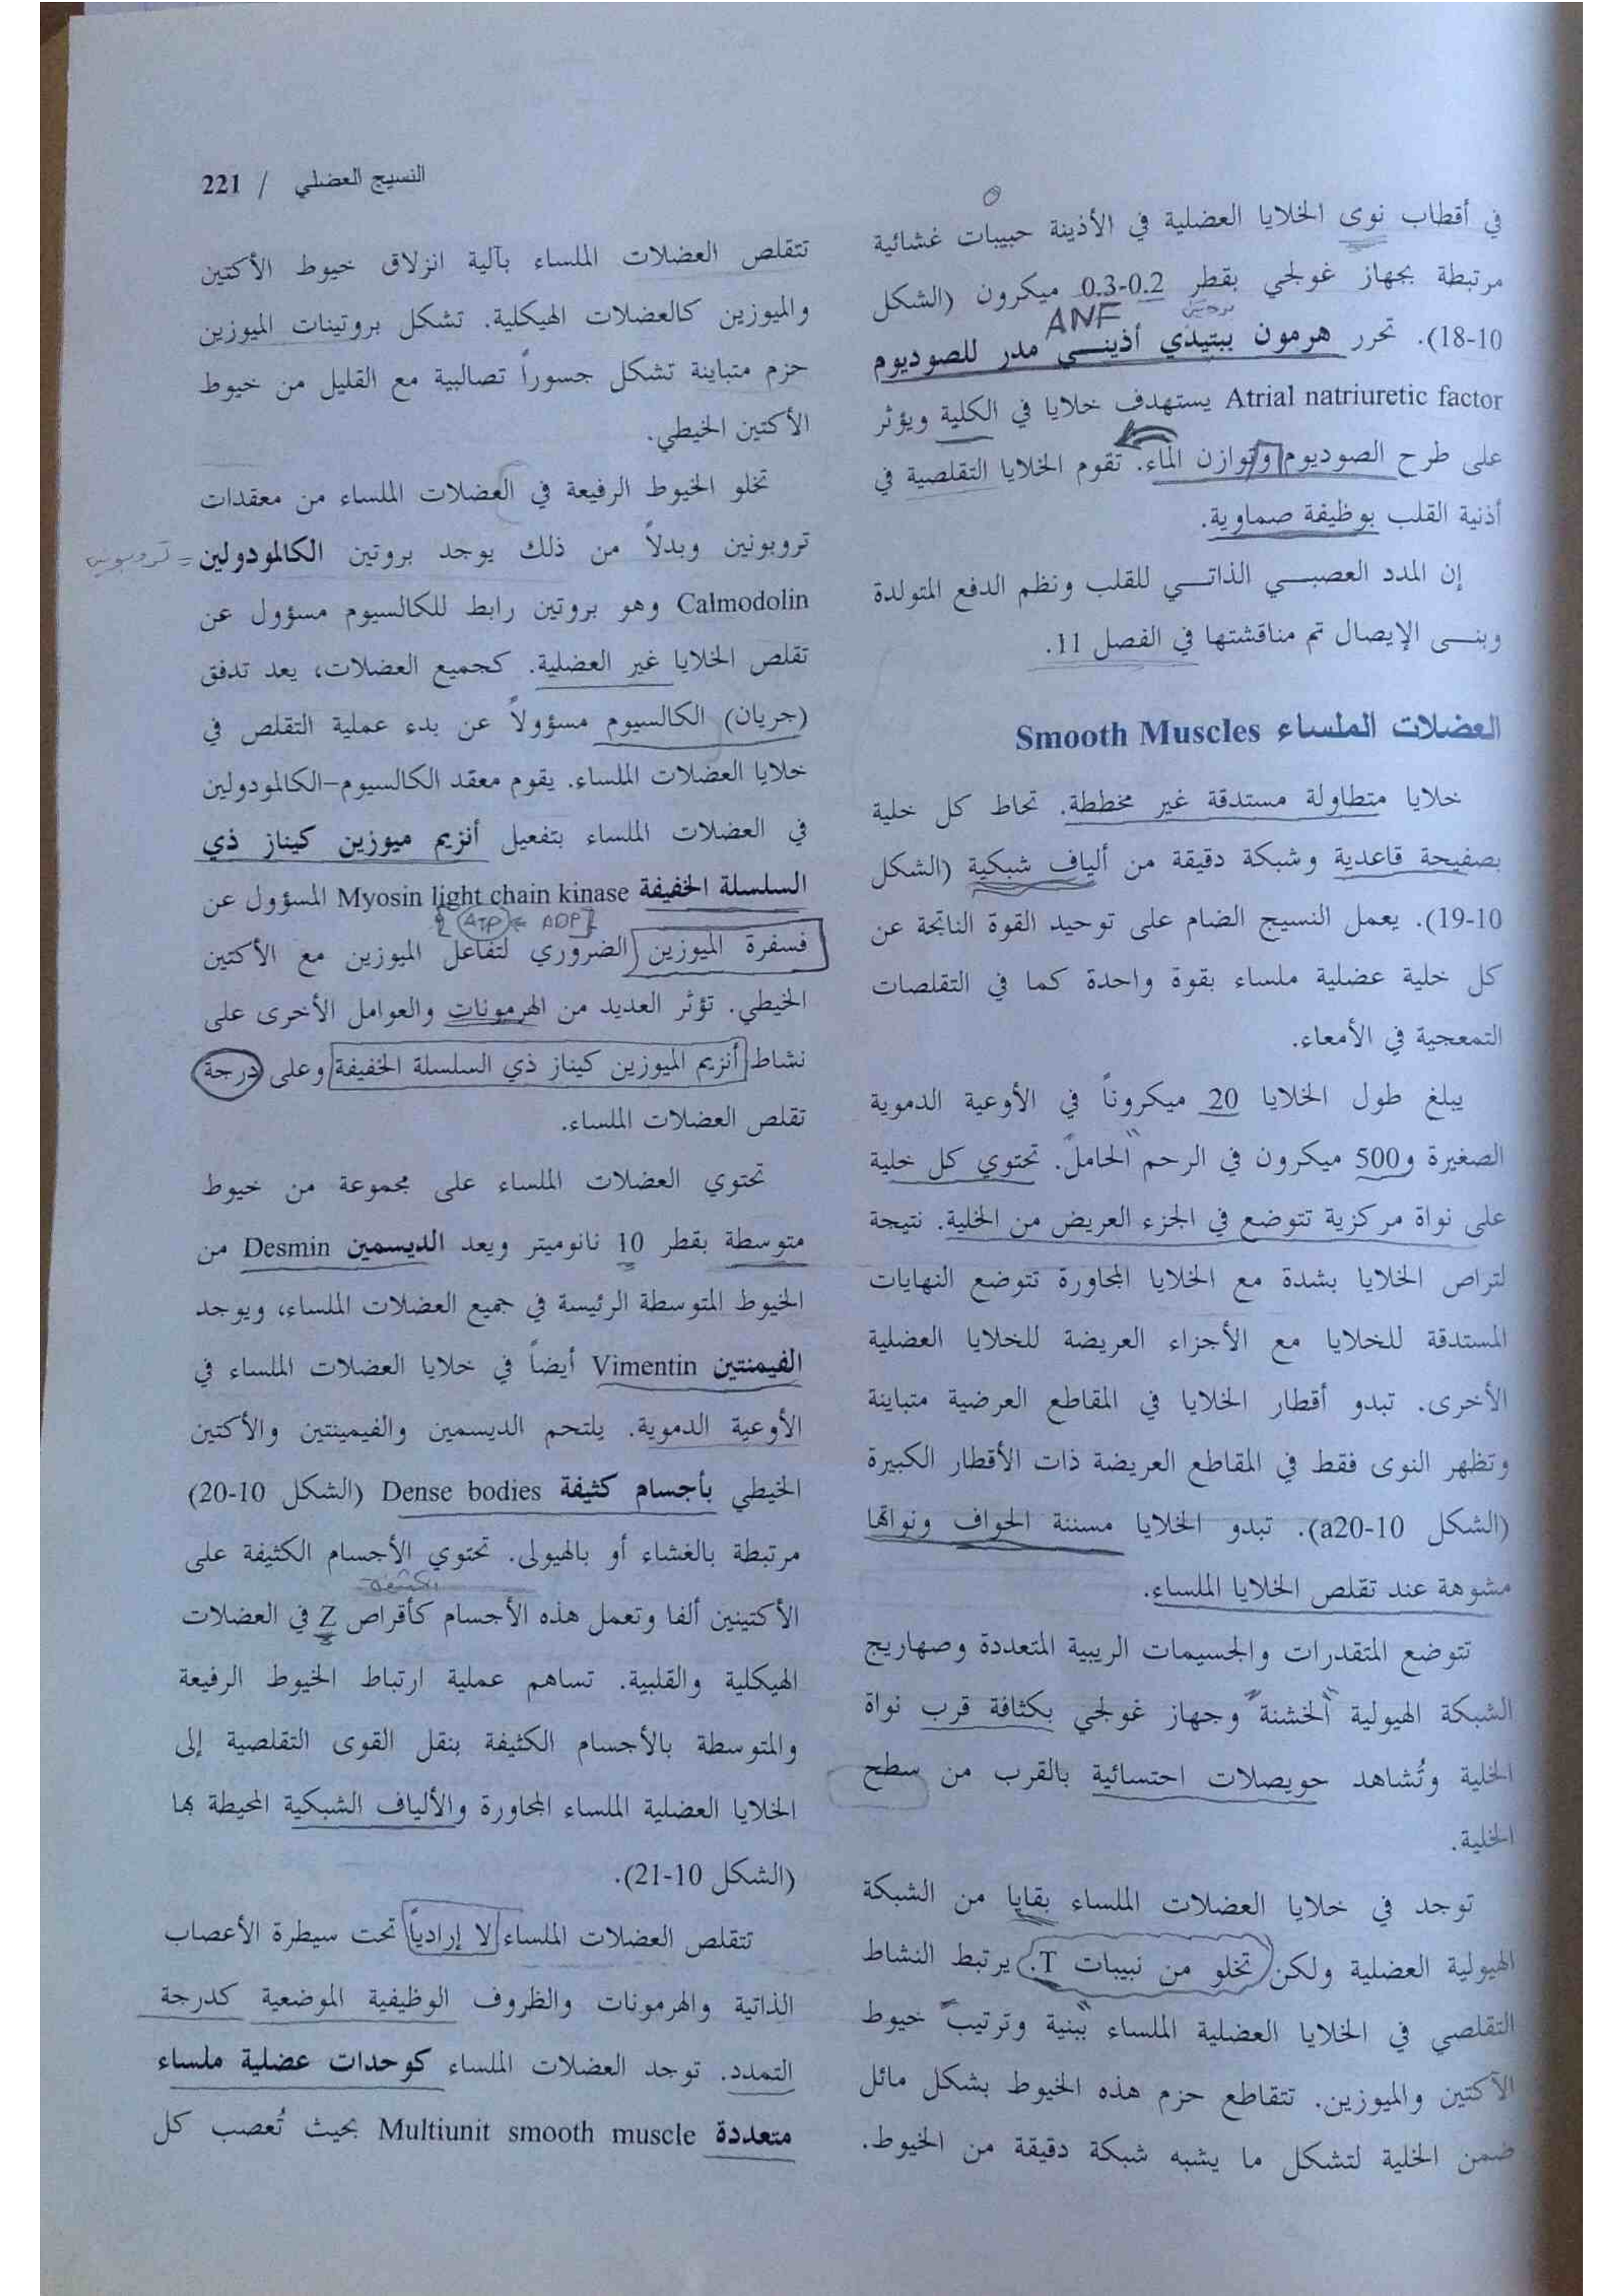 النسيج العضلي / 221
في أقطاب نوى الخلايا العضلية في الأذينة حبيبات غشائية
مرتبطة بجهاز غولجي بقطر 0.2-0.3 ميكرون (الشكل
10-18). تحرر هرمون ببتيدي أذينـي مدر للصوديوم
ANF
Atrial natriuretic factor يستهدف خلايا في الكلية ويؤثر
على طرح الصوديوم وتوازن الماء. تقوم الخلايا التقلصية في
أذنية القلب بوظيفة صماوية.
إن المدد العصبـي الذاتـي للقلب ونظم الدفع المتولدة
وبنـى الإيصال تم مناقشتها في الفصل 11.
العضلات الملساء Smooth Muscles
خلايا متطاولة مستدقة غير مخططة. تحاط كل خلية
بصفيحة قاعدية وشبكة دقيقة من ألياف شبكية (الشكل
10-19). يعمل النسيج الضام على توحيد القوة الناتجة عن
كل خلية عضلية ملساء بقوة واحدة كما في التقلصات
التمعجية في الأمعاء.
يبلغ طول الخلايا 20 ميكروناً في الأوعية الدموية
الصغيرة و500 ميكرون في الرحم الحامل. تحتوي كل خلية
على نواة مركزية تتوضع في الجزء العريض من الخلية. نتيجة
لتراص الخلايا بشدة مع الخلايا المجاورة تتوضع النهايات
المستدقة للخلايا مع الأجزاء العريضة للخلايا العضلية
الأخرى. تبدو أقطار الخلايا في المقاطع العرضية متباينة
وتظهر النوى فقط في المقاطع العريضة ذات الأقطار الكبيرة
(الشكل 10-20a). تبدو الخلايا مسننة الحواف ونواتها
مشوهة عند تقلص الخلايا الملساء.
تتوضع المتقدرات والجسيمات الريبية المتعددة وصهاريج
الشبكة الهيولية "الخشنة" وجهاز غولجي بكثافة قرب نواة
الخلية وتُشاهد حويصلات احتسائية بالقرب من سطح
الخلية.
توجد في خلايا العضلات الملساء بقايا من الشبكة
الهيولية العضلية ولكن تخلو من نبيبات T. يرتبط النشاط
التقلصي في الخلايا العضلية الملساء "ببنية وترتيب" خيوط
الآكتين والميوزين. تتقاطع حزم هذه الخيوط بشكل مائل
ضمن الخلية لتشكل ما يشبه شبكة دقيقة من الخيوط.
تتقلص العضلات الملساء بآلية انزلاق خيوط الأكتين
والميوزين كالعضلات الهيكلية. تشكل بروتينات الميوزين
حزم متباينة تشكل جسوراً تصالبية مع القليل من خيوط
الأكتين الخيطي.
تخلو الخيوط الرفيعة في العضلات الملساء من معقدات
تروبونين وبدلاً من ذلك يوجد بروتين الكالمودولين
Calmodolin وهو بروتين رابط للكالسيوم مسؤول عن
تقلص الخلايا غير العضلية. كجميع العضلات، يعد تدفق
(جريان) الكالسيوم مسؤولاً عن بدء عملية التقلص في
خلايا العضلات الملساء. يقوم معقد الكالسيوم-الكالمودولين
في العضلات الملساء بتفعيل أنزيم ميوزين كيناز ذي
السلسلة الخفيفة Myosin light chain kinase المسؤول عن
ATP ← ADP
فسفرة الميوزين الضروري لتفاعل الميوزين مع الأكتين
الخيطي. تؤثر العديد من الهرمونات والعوامل الأخرى على
نشاط أنزيم الميوزين كيناز ذي السلسلة الخفيفة وعلى درجة
تقلص العضلات الملساء.
تحتوي العضلات الملساء على مجموعة من خيوط
متوسطة بقطر 10 نانوميتر ويعد الديسمين Desmin من
الخيوط المتوسطة الرئيسة في جميع العضلات الملساء، ويوجد
الفيمنتين Vimentin أيضاً في خلايا العضلات الملساء في
الأوعية الدموية. يلتحم الديسمين والفيمينتين والأكتين
الخيطي بأجسام كثيفة Dense bodies (الشكل 10-20)
مرتبطة بالغشاء أو بالهيولى. تحتوي الأجسام الكثيفة على
الكثيفة
الأكتينين ألفا وتعمل هذه الأجسام كأقراص Z في العضلات
الهيكلية والقلبية. تساهم عملية ارتباط الخيوط الرفيعة
والمتوسطة بالأجسام الكثيفة بنقل القوى التقلصية إلى
الخلايا العضلية الملساء المجاورة والألياف الشبكية المحيطة بها
(الشكل 10-21).
تتقلص العضلات الملساء لا إرادياً تحت سيطرة الأعصاب
الذاتية والهرمونات والظروف الوظيفية الموضعية كدرجة
التمدد. توجد العضلات الملساء كوحدات عضلية ملساء
متعددة Multiunit smooth muscle بحيث تُعصب كل